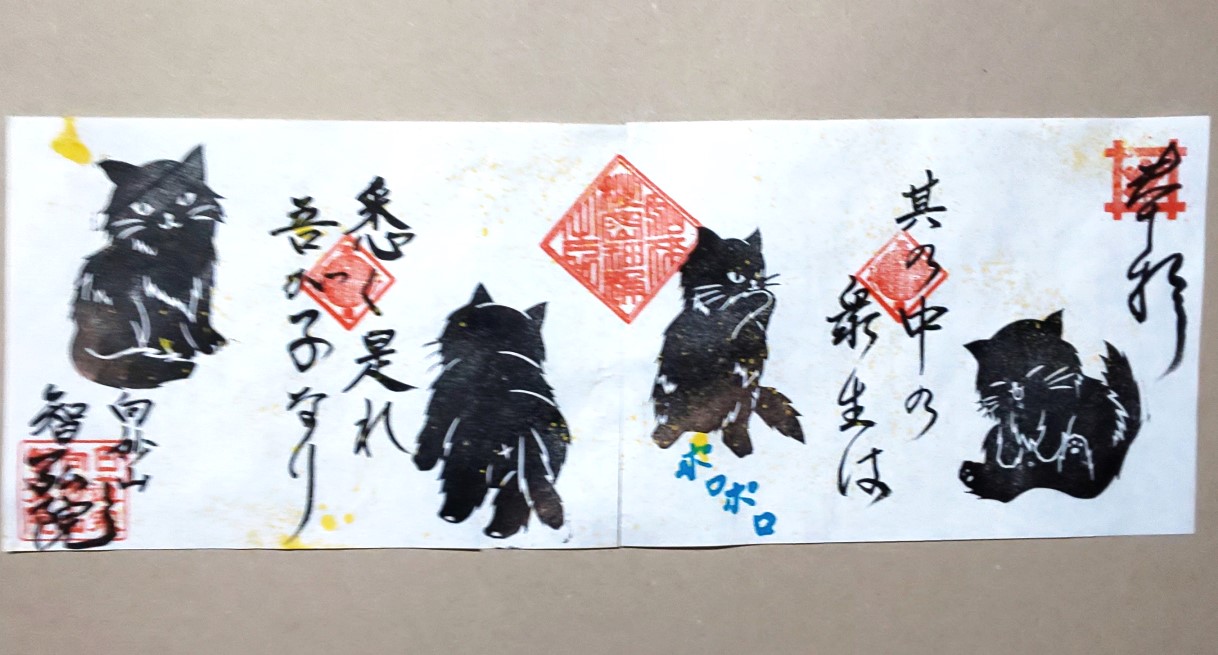 奉拝
其の中の
衆生は
ポロポロ
悉く是れ
吾が子なり
向妙山
智弘院